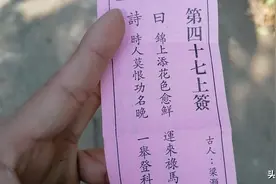 第四十七上簽
古人：梁
詩曰
錦上添花色愈鮮
運來祿馬
時人莫恨功名晚
一舉登科
头